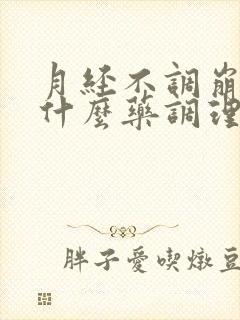 月经不調崩
什麼藥調理
胖子愛喫燉豆